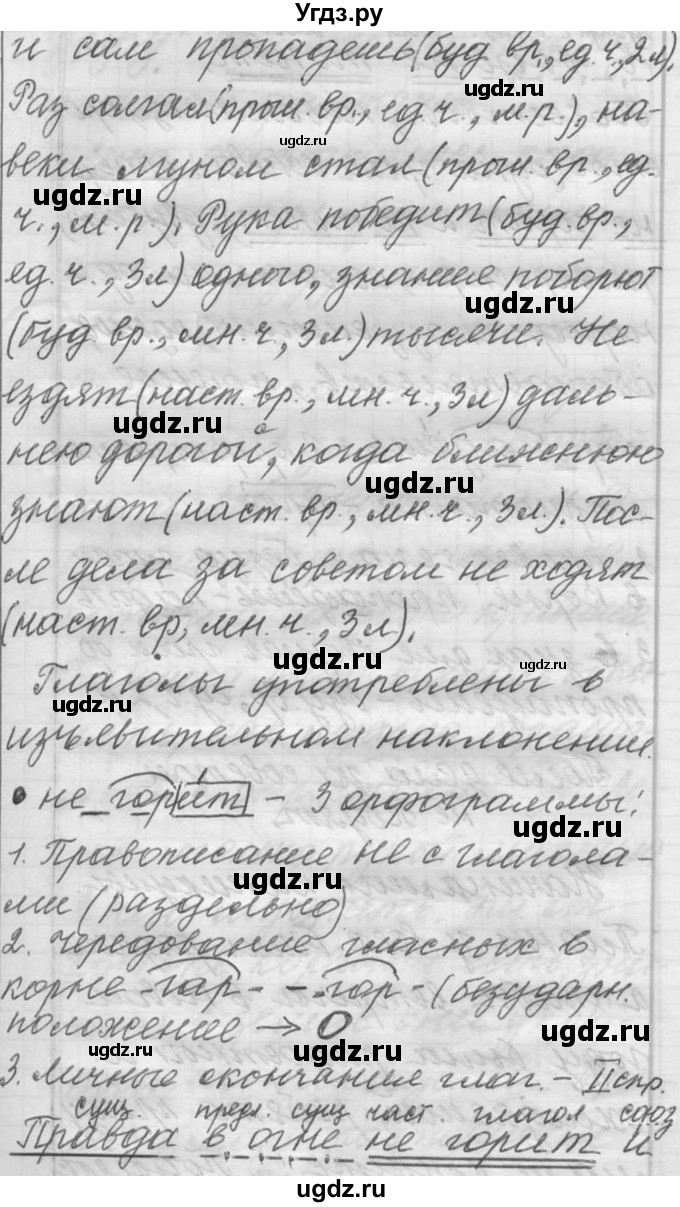 Угдз.ру
и сам пропадешь (буд. вр., ед. ч., 2 л).
Раз солгал (прош. вр., ед. ч., м. р.), на-
веки лгуном стал (прош. вр., ед.
ч., м. р.). Рука победит (буд. вр.,
ед. ч., 3 л) одного, знание поборют
(буд. вр., мн. ч., 3 л.) тысячи. Не
ездят (наст. вр., мн. ч., 3 л) даль-
нею дорогой, когда ближнюю
знают (наст. вр., мн. ч., 3 л.). Пос-
ле дела за советом не ходят
(наст. вр, мн. ч., 3 л).
Глаголы употреблены в
изъявительном наклонении.
• не горит - 3 орфограммы:
1. Правописание не с глагола-
ми (раздельно)
2. Чередование гласных в
корне -гар- - -гор- (безударн.
положение → О
3. Личные окончания глаг. - II спр.
сущ. предл. сущ част. глагол союз
Правда в огне не горит и
ugdz.ru
ugdz.ru
ugdz.ru
ugdz.ru
ugdz.ru
ugdz.ru
ugdz.ru
ugdz.ru
ugdz.ru
ugdz.ru
ugdz.ru
ugdz.ru
ugdz.ru
ugdz.ru
ugdz.ru
ugdz.ru